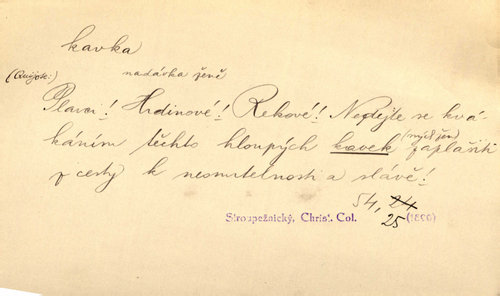 kavka
(Quijote:) nadávka ženě
Plavci! Hrdinové! Rekové! Nedejte se kvá-
káním těchto hloupých kavek (mých žen) zaplašiti
z cesty k nesmrtelnosti a slávě!
54, 24
Stroupežnický, Christ. Col. 25 (1890)